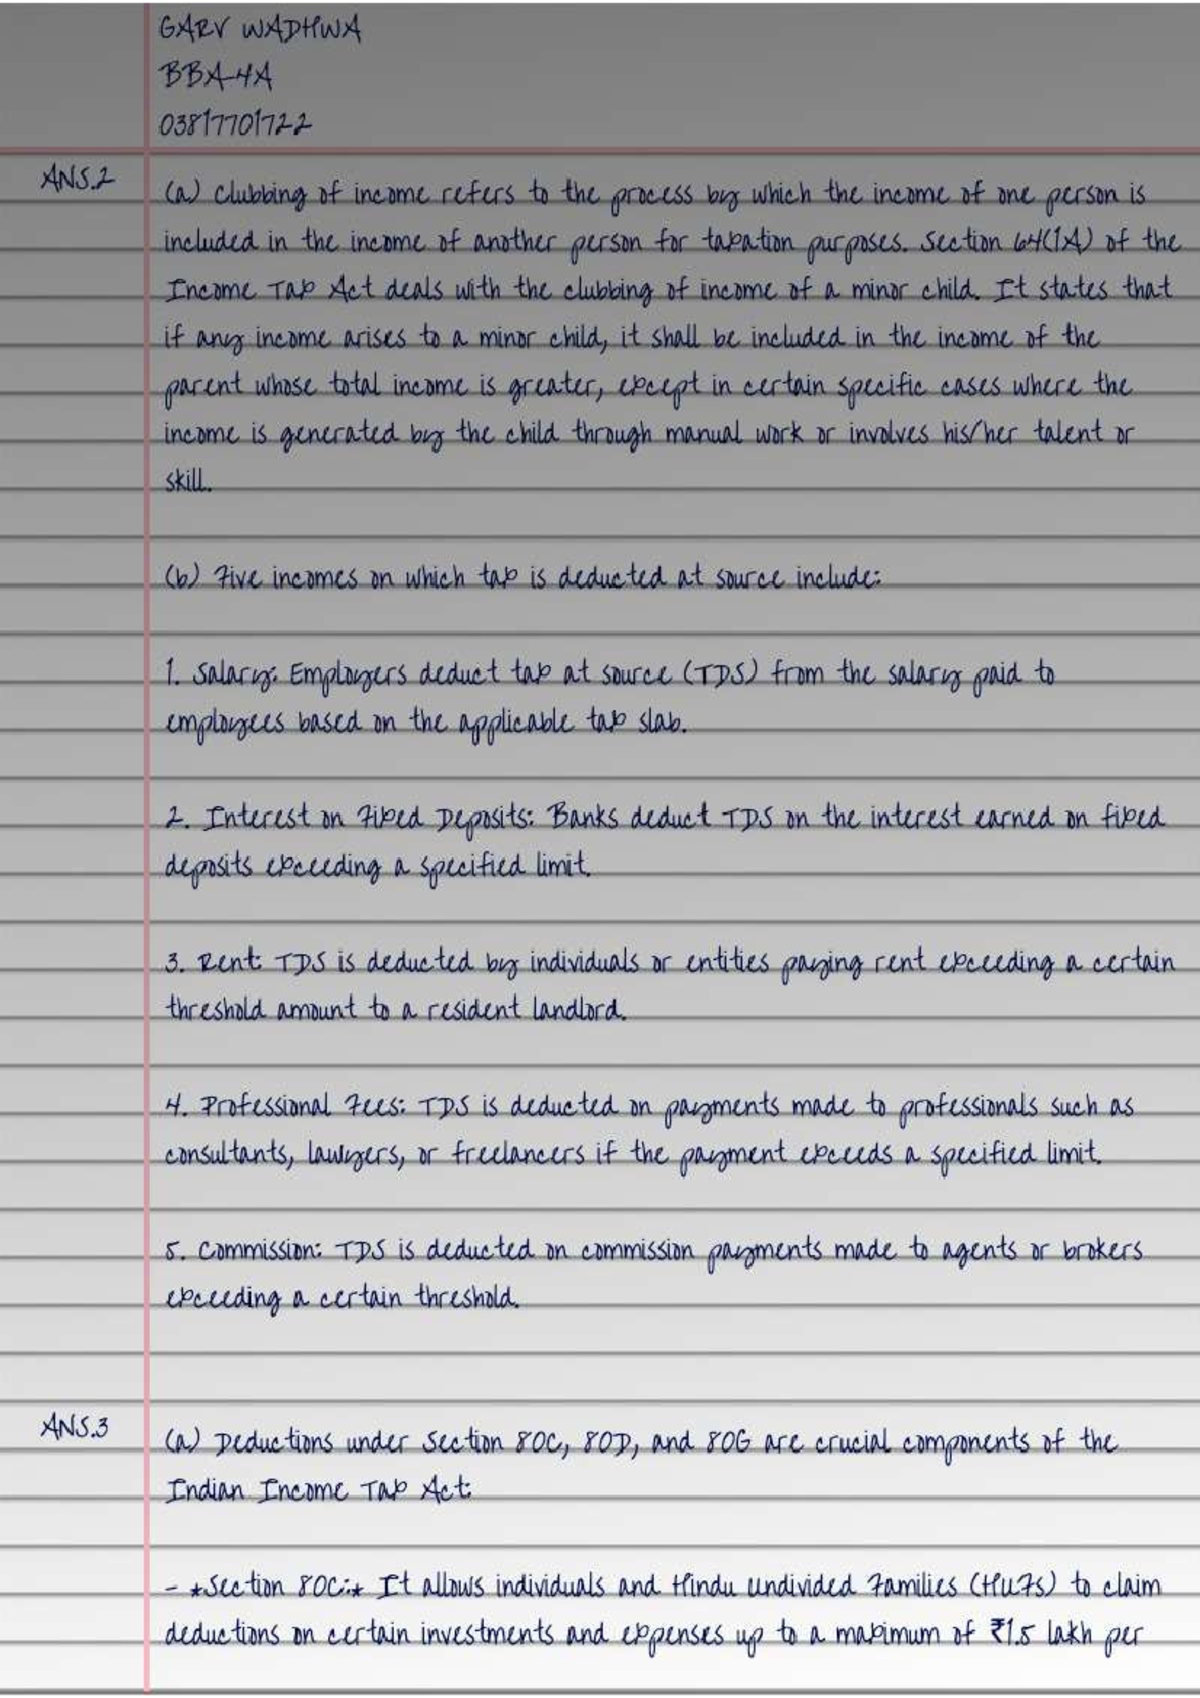 GARV WADHWA
BBA-4A
03817701722
ANS.2
(a) Clubbing of income refers to the process by which the income of one person is
included in the income of another person for taxation purposes. Section 64(1A) of the
Income Tax Act deals with the clubbing of income of a minor child. It states that
if any income arises to a minor child, it shall be included in the income of the
parent whose total income is greater, except in certain specific cases where the
income is generated by the child through manual work or involves his/her talent or
skill.
(b) Five incomes on which tax is deducted at source include:
1. Salary: Employers deduct tax at source (TDS) from the salary paid to
employees based on the applicable tax slab.
2. Interest on Fixed Deposits: Banks deduct TDS on the interest earned on fixed
deposits exceeding a specified limit.
3. Rent: TDS is deducted by individuals or entities paying rent exceeding a certain
threshold amount to a resident landlord.
4. Professional Fees: TDS is deducted on payments made to professionals such as
consultants, lawyers, or freelancers if the payment exceeds a specified limit.
5. Commission: TDS is deducted on commission payments made to agents or brokers
exceeding a certain threshold.
ANS.3
(a) Deductions under Section 80C, 80D, and 80G are crucial components of the
Indian Income Tax Act:
- *Section 80C:* It allows individuals and Hindu Undivided Families (HUFs) to claim
deductions on certain investments and expenses up to a maximum of ₹1.5 lakh per